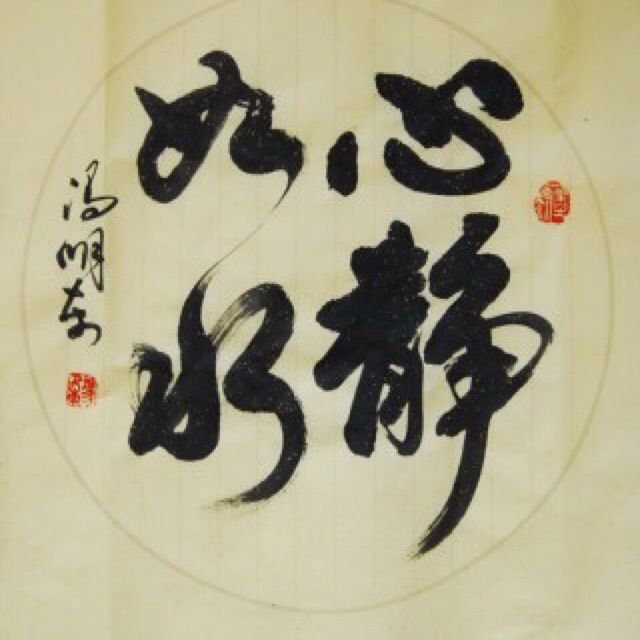 心静
如水
冯明东